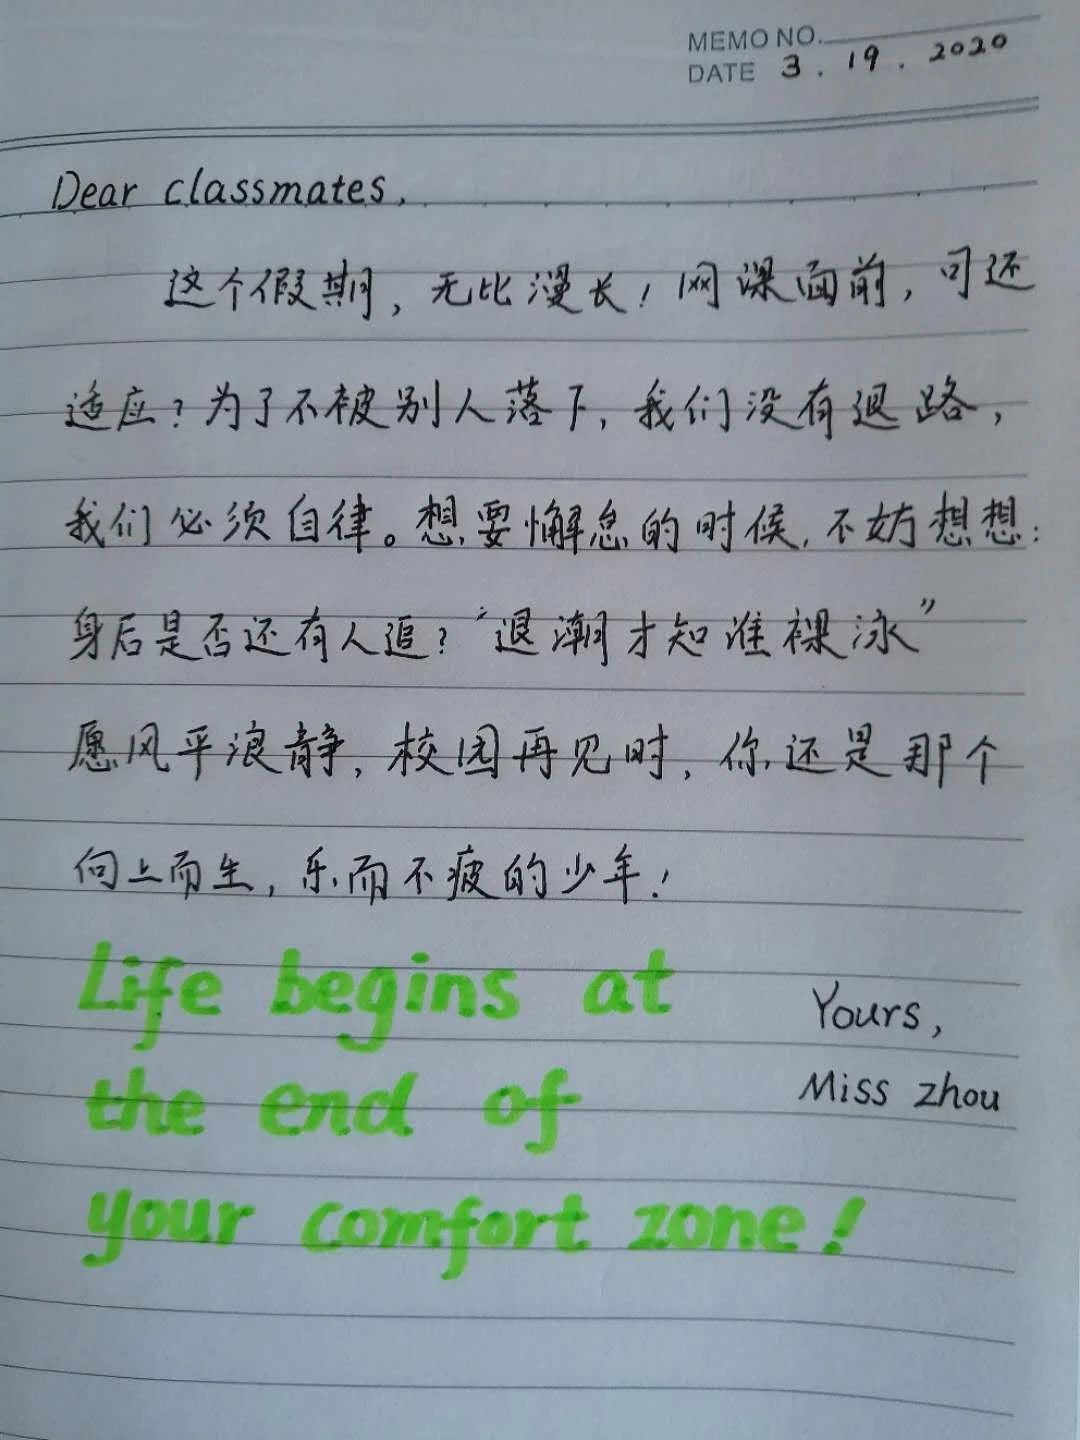 MEMO NO.
DATE 3.19.2020
Dear classmates,
这个假期，无比漫长！网课面前，可还
适应？为了不被别人落下，我们没有退路，
我们必须自律。想要懈怠的时候，不妨想想：
身后是否还有人追？“退潮才知谁裸泳”
愿风平浪静，校园再见时，你还是那个
向上而生，乐而不疲的少年！
Life begins at
Yours,
the end of
Miss zhou
your comfort zone!